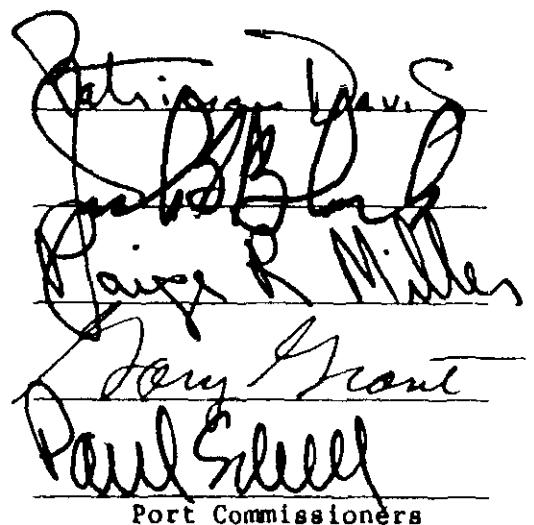 Patricia Davis
Jack Block
Paige R Miller
Gary Grant
Paul Schell
Port Commissioners